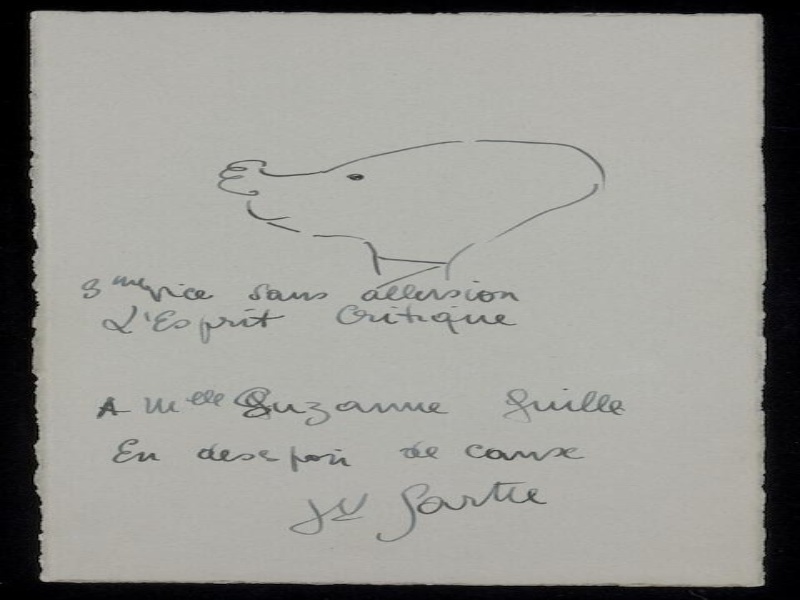 3me vice sans allusion
L'Esprit Critique
A Melle Suzanne Guille
En desespoir de cause
JP Sartre